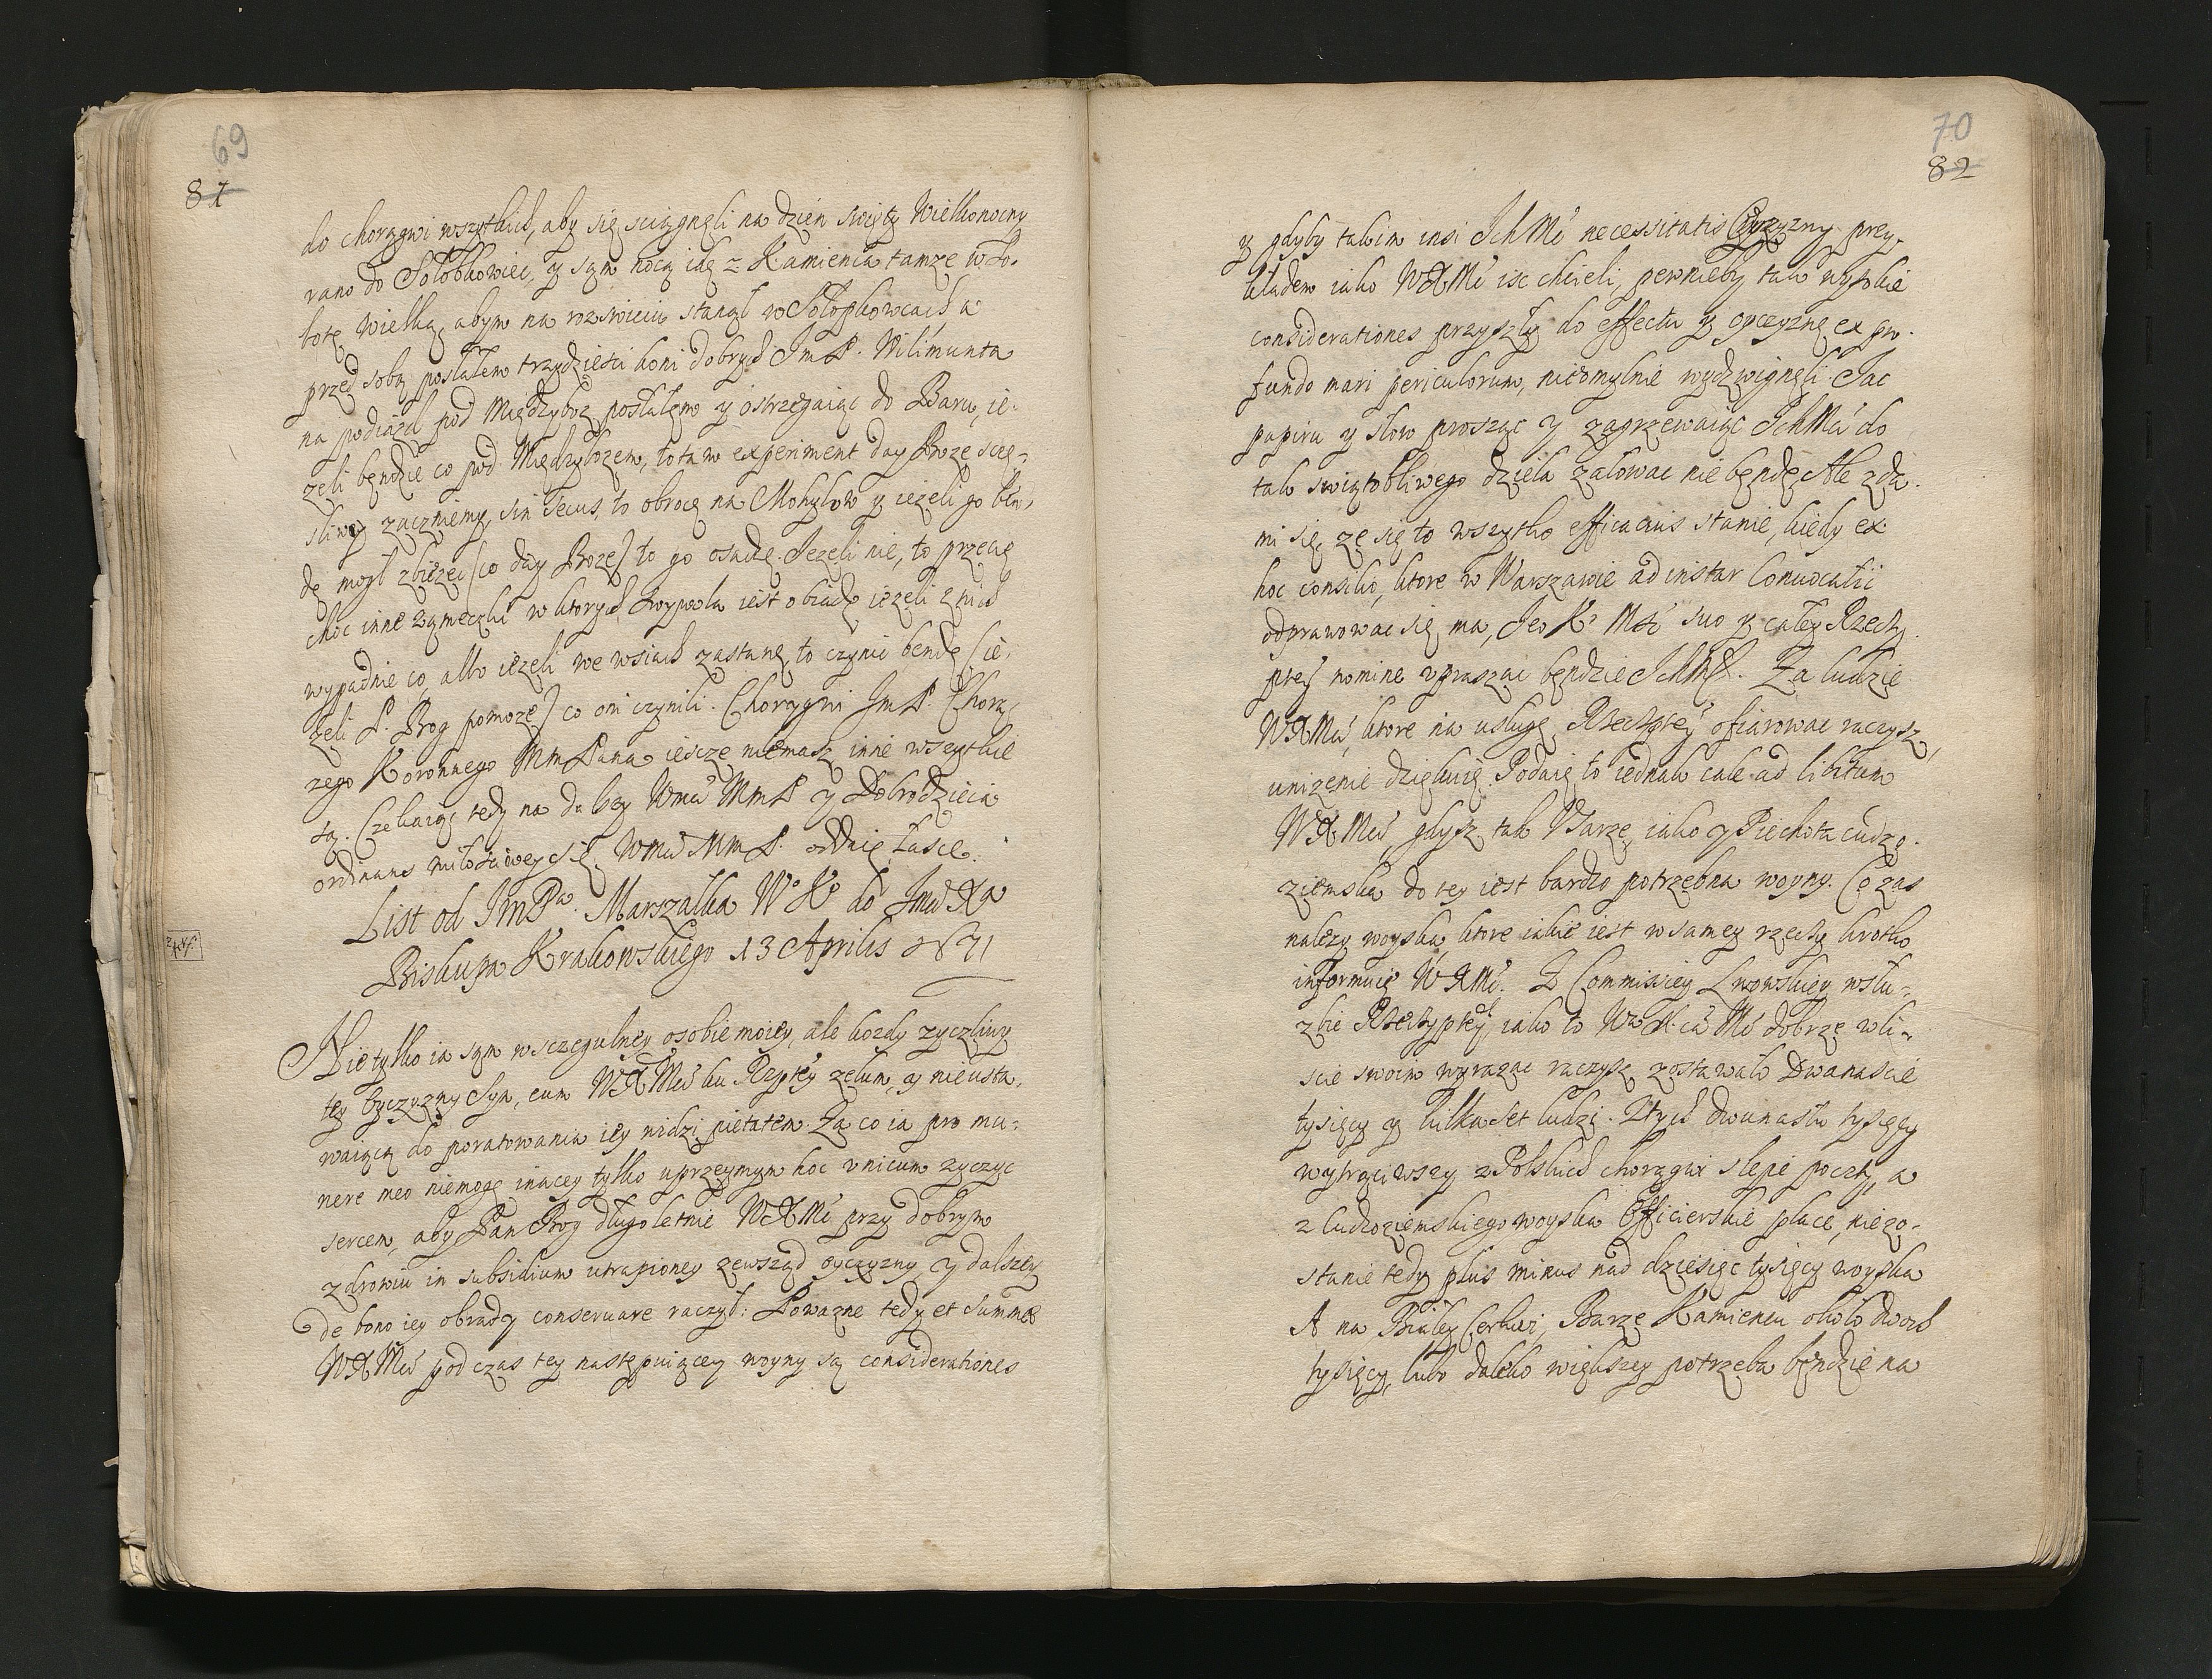 69
81
do chorągwi wszytkich, aby się sciągnęli na dzien swięty Wielkonocny
rano do Sołobkowiec, y sąm nocą idę z Kamienca tamze w So-
botę Wielką, abym na rozswiciu stanął w Sołopkowcach a
przed sobą posłałem trzydziesci koni dobrych JmP. Wilimunta
na podiazd pod Międzyboz posłałem y ostrzegaiąc do Baru, ie-
zeli bęndzie co pod Międzybozem, to tam experiment day Boze scę-
sliwy zaczniemy, sin secus, to obrocę na Mohylow y iezeli go bęn-
dę mogł zbiezec (co day Boze) to go osadzę. Iezeli nie, to przecię
choc inne zameczki w ktorych zwywola iest obiadę iezeli z nich
wypadnie co, albo iezeli we wsiach zastanę, to czynic bendę (ie-
zeli P. Bog pomoze) co oni czynili. Chorągwi JmP. Chorą-
zego Koronnego MmPana iescze niemasz, inne wszytkie
są. Czekaiąc tedy na dalszy Wmci MmP y Dobrodzieia
ordinans miłosciwey się Wmci MmP. oddaię łasce.
List od JmPa. Marszałka W° K° do Jmci Xa
Biskupa Krakowskiego 13 Aprilis 1671
Nie tylko ia sąm w sczegulney osobie moiey, ale kozdy zyczliwy
tey oyczyzny Syn, eum WXMci ku Rzptey zelum, y nieusta-
waiącą do poratowania iey widzi pietatem. Za co ia pro mu-
nere meo niemogę inacey tylko uprzeymym hoc vnicum zyczyc
sercem, aby Pan Bog długoletnie WXMc przy dobrym
zdrowiu in subsidium utrapioney zewsząd oyczyzny y dalszey
de bono iey obrady conseruare raczył: Powazne tedy et summae
WXMci podczas tey następuiącey woyny są considerationes
70
82
y gdyby takim insi IchMc necessitatis Oyczyzny przy-
kładem iako WXMc isc chcieli, pewnieby tak wysokie
considerationes przyszły do effectu y oyczyznę ex pro-
fundo mari periculorum, nieomylnie wydzwignęli. Iac
papiru y słow prosząc y zagrzewaiąc IchMci do
tak swiątobliwego dzieła załowac nie bęndę. Ale zda
mi się, ze się to wszytko efficacius stanie, kiedy ex
hoc consilio, ktore w Warszawie ad instar Conuocatii
odprawowac się ma, Ieo K° Mśc suo y całey Rzeczy
ptey nomine vpraszac bęndzie IchMc. Za ludzie
WXMci, ktore na usługę Rzeczyptey ofiarowac raczysz,
unizenie dziękuię. Podaię to iednak cale ad libitum
WXMci gdysz tak Usarze, iako y Piechota cudzo-
ziemska do tey iest bardzo potrzebna woyny. Co zas
nalezy woyska ktore iakie iest w samey rzeczy krotko
informuię WXMc. Z Commissiey Lwowskiey w słu-
zbie Rzeczyptey, iako to Wm X.ca Mc dobrze w li-
scie swoim wyrazac raczysz zostawało Dwanascie
tysięcy y kilkaset ludzi. Z tych dwunastu tysięcy
wytrąciwszy z Polskich chorągwi slepe poczty, a
z Cudzoziemskiego woyska Officierskie płace, niezo-
stanie tedy plus minus nad dziesięc tysięcy woyska
A na Białey Cerkwi, Barze Kamiencu około dwoch
tysięcy, lubo daleko większey potrzeba bęndzie na